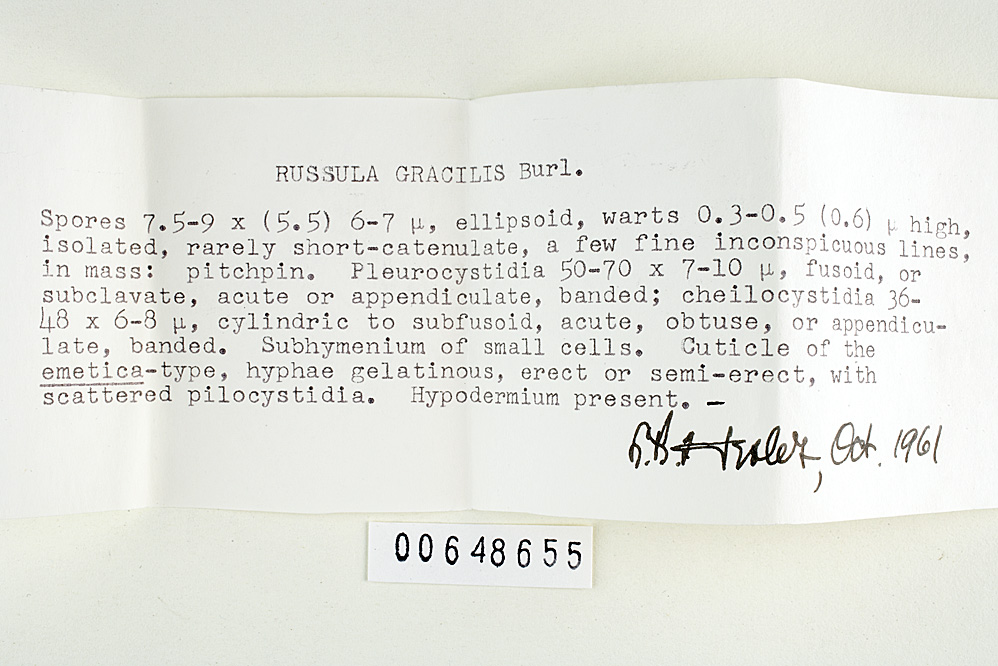 RUSSULA GRACILIS Burl.
Spores 7.5-9 x (5.5) 6-7 µ, ellipsoid, warts 0.3-0.5 (0.6) µ high,
isolated, rarely short-catenulate, a few fine inconspicuous lines,
in mass: pitchpin. Pleurocystidia 50-70 x 7-10 µ, fusoid, or
subclavate, acute or appendiculate, banded; cheilocystidia 36-
48 x 6-8 µ, cylindric to subfusoid, acute, obtuse, or appendicu-
late, banded. Subhymenium of small cells. Cuticle of the
emetica-type, hyphae gelatinous, erect or semi-erect, with
scattered pilocystidia. Hypodermium present. —
L.R. Hesler, Oct. 1961
00648655